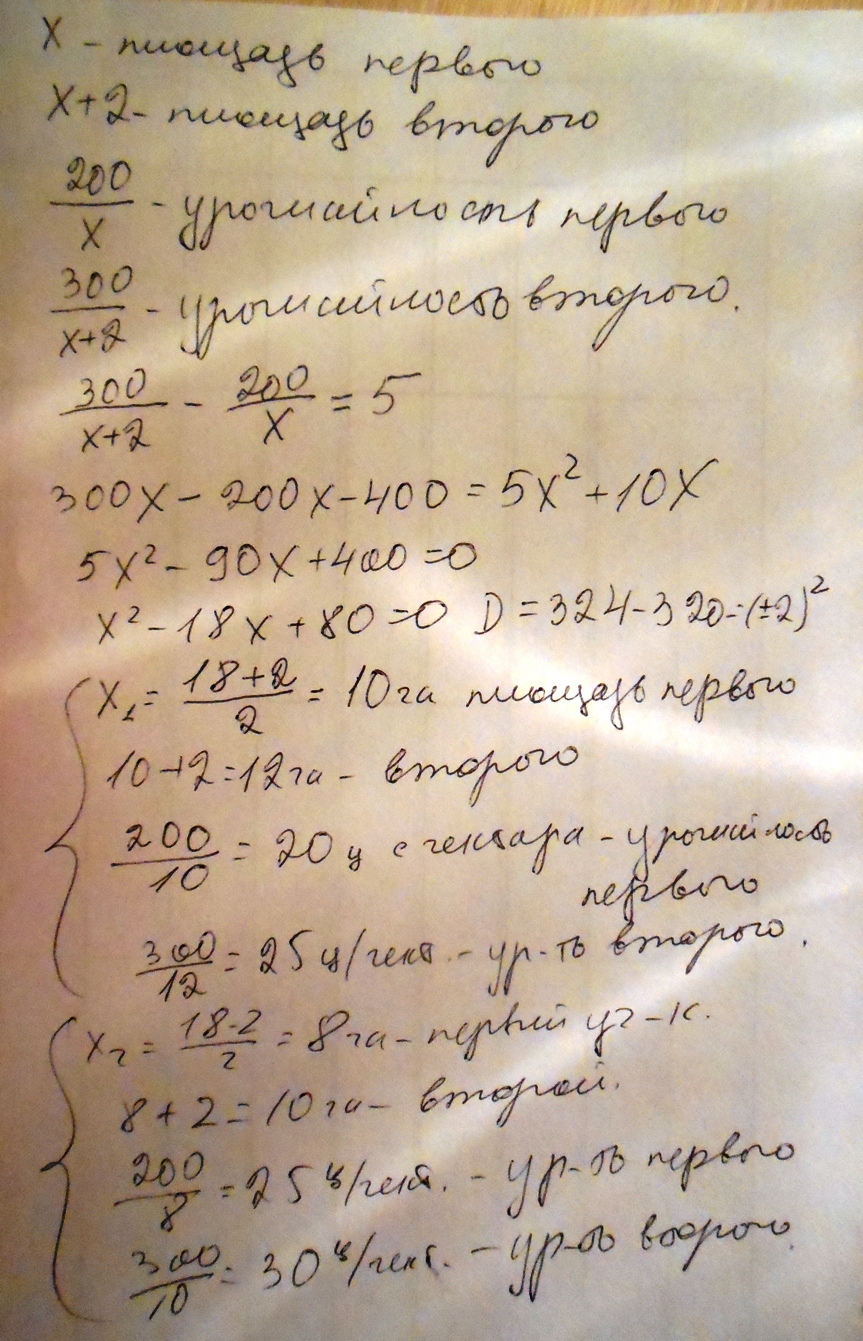 x - площадь первого
x+2 - площадь второго
200/x - урожайность первого
300/x+2 - урожайность второго.
300/x+2 - 200/x = 5
300x - 200x - 400 = 5x² + 10x
5x² - 90x + 400 = 0
x² - 18x + 80 = 0 D = 324 - 320 = (±2)²
x₁ = 18+2/2 = 10 га площадь первого
10+2=12 га - второго
200/10 = 20 ц с гектара - урожайность
первого
300/12 = 25 ц/гект. - ур-ть второго.
x₂ = 18-2/2 = 8 га - первый уч-к.
8+2=10 га - второй.
200/8 = 25 ц/гект. - ур-ть первого
300/10 = 30 ц/гект. - ур-ть второго.